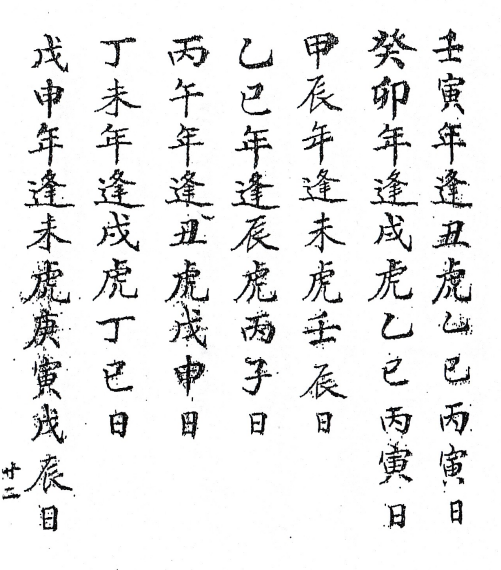 壬寅年逢丑虎乙巳丙寅日
癸卯年逢戌虎乙巳丙寅日
甲辰年逢未虎壬辰日
乙巳年逢辰虎丙子日
丙午年逢丑虎戊申日
丁未年逢戌虎丁巳日
戊申年逢未虎庚寅戊辰日
廿二